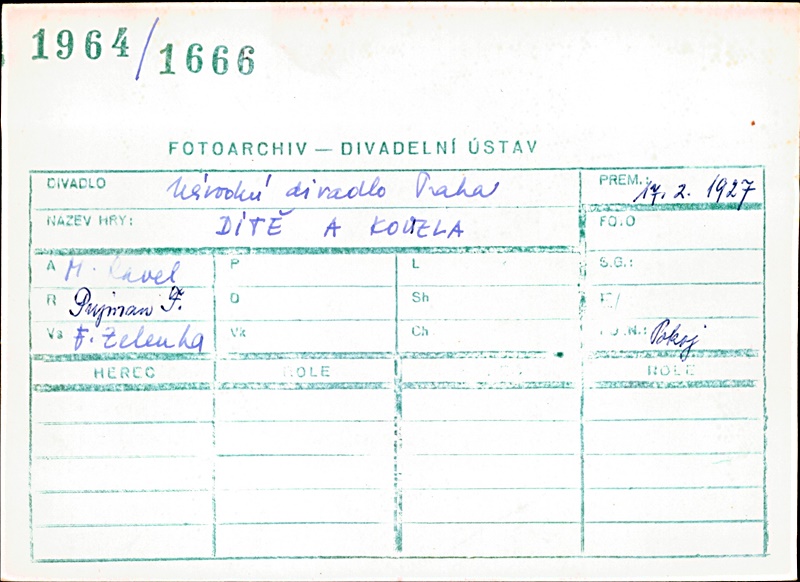 1964/1666
FOTOARCHIV — DIVADELNÍ ÚSTAV
DIVADLO Národní divadlo Praha PREM.: 17. 2. 1927
NÁZEV HRY: DÍTĚ A KOUZLA FOTO
A M. Ravel P L S.G.:
R Pujman F. D Sh
Vs F. Zelenka Vk Ch Pokoj
HEREC ROLE ROLE